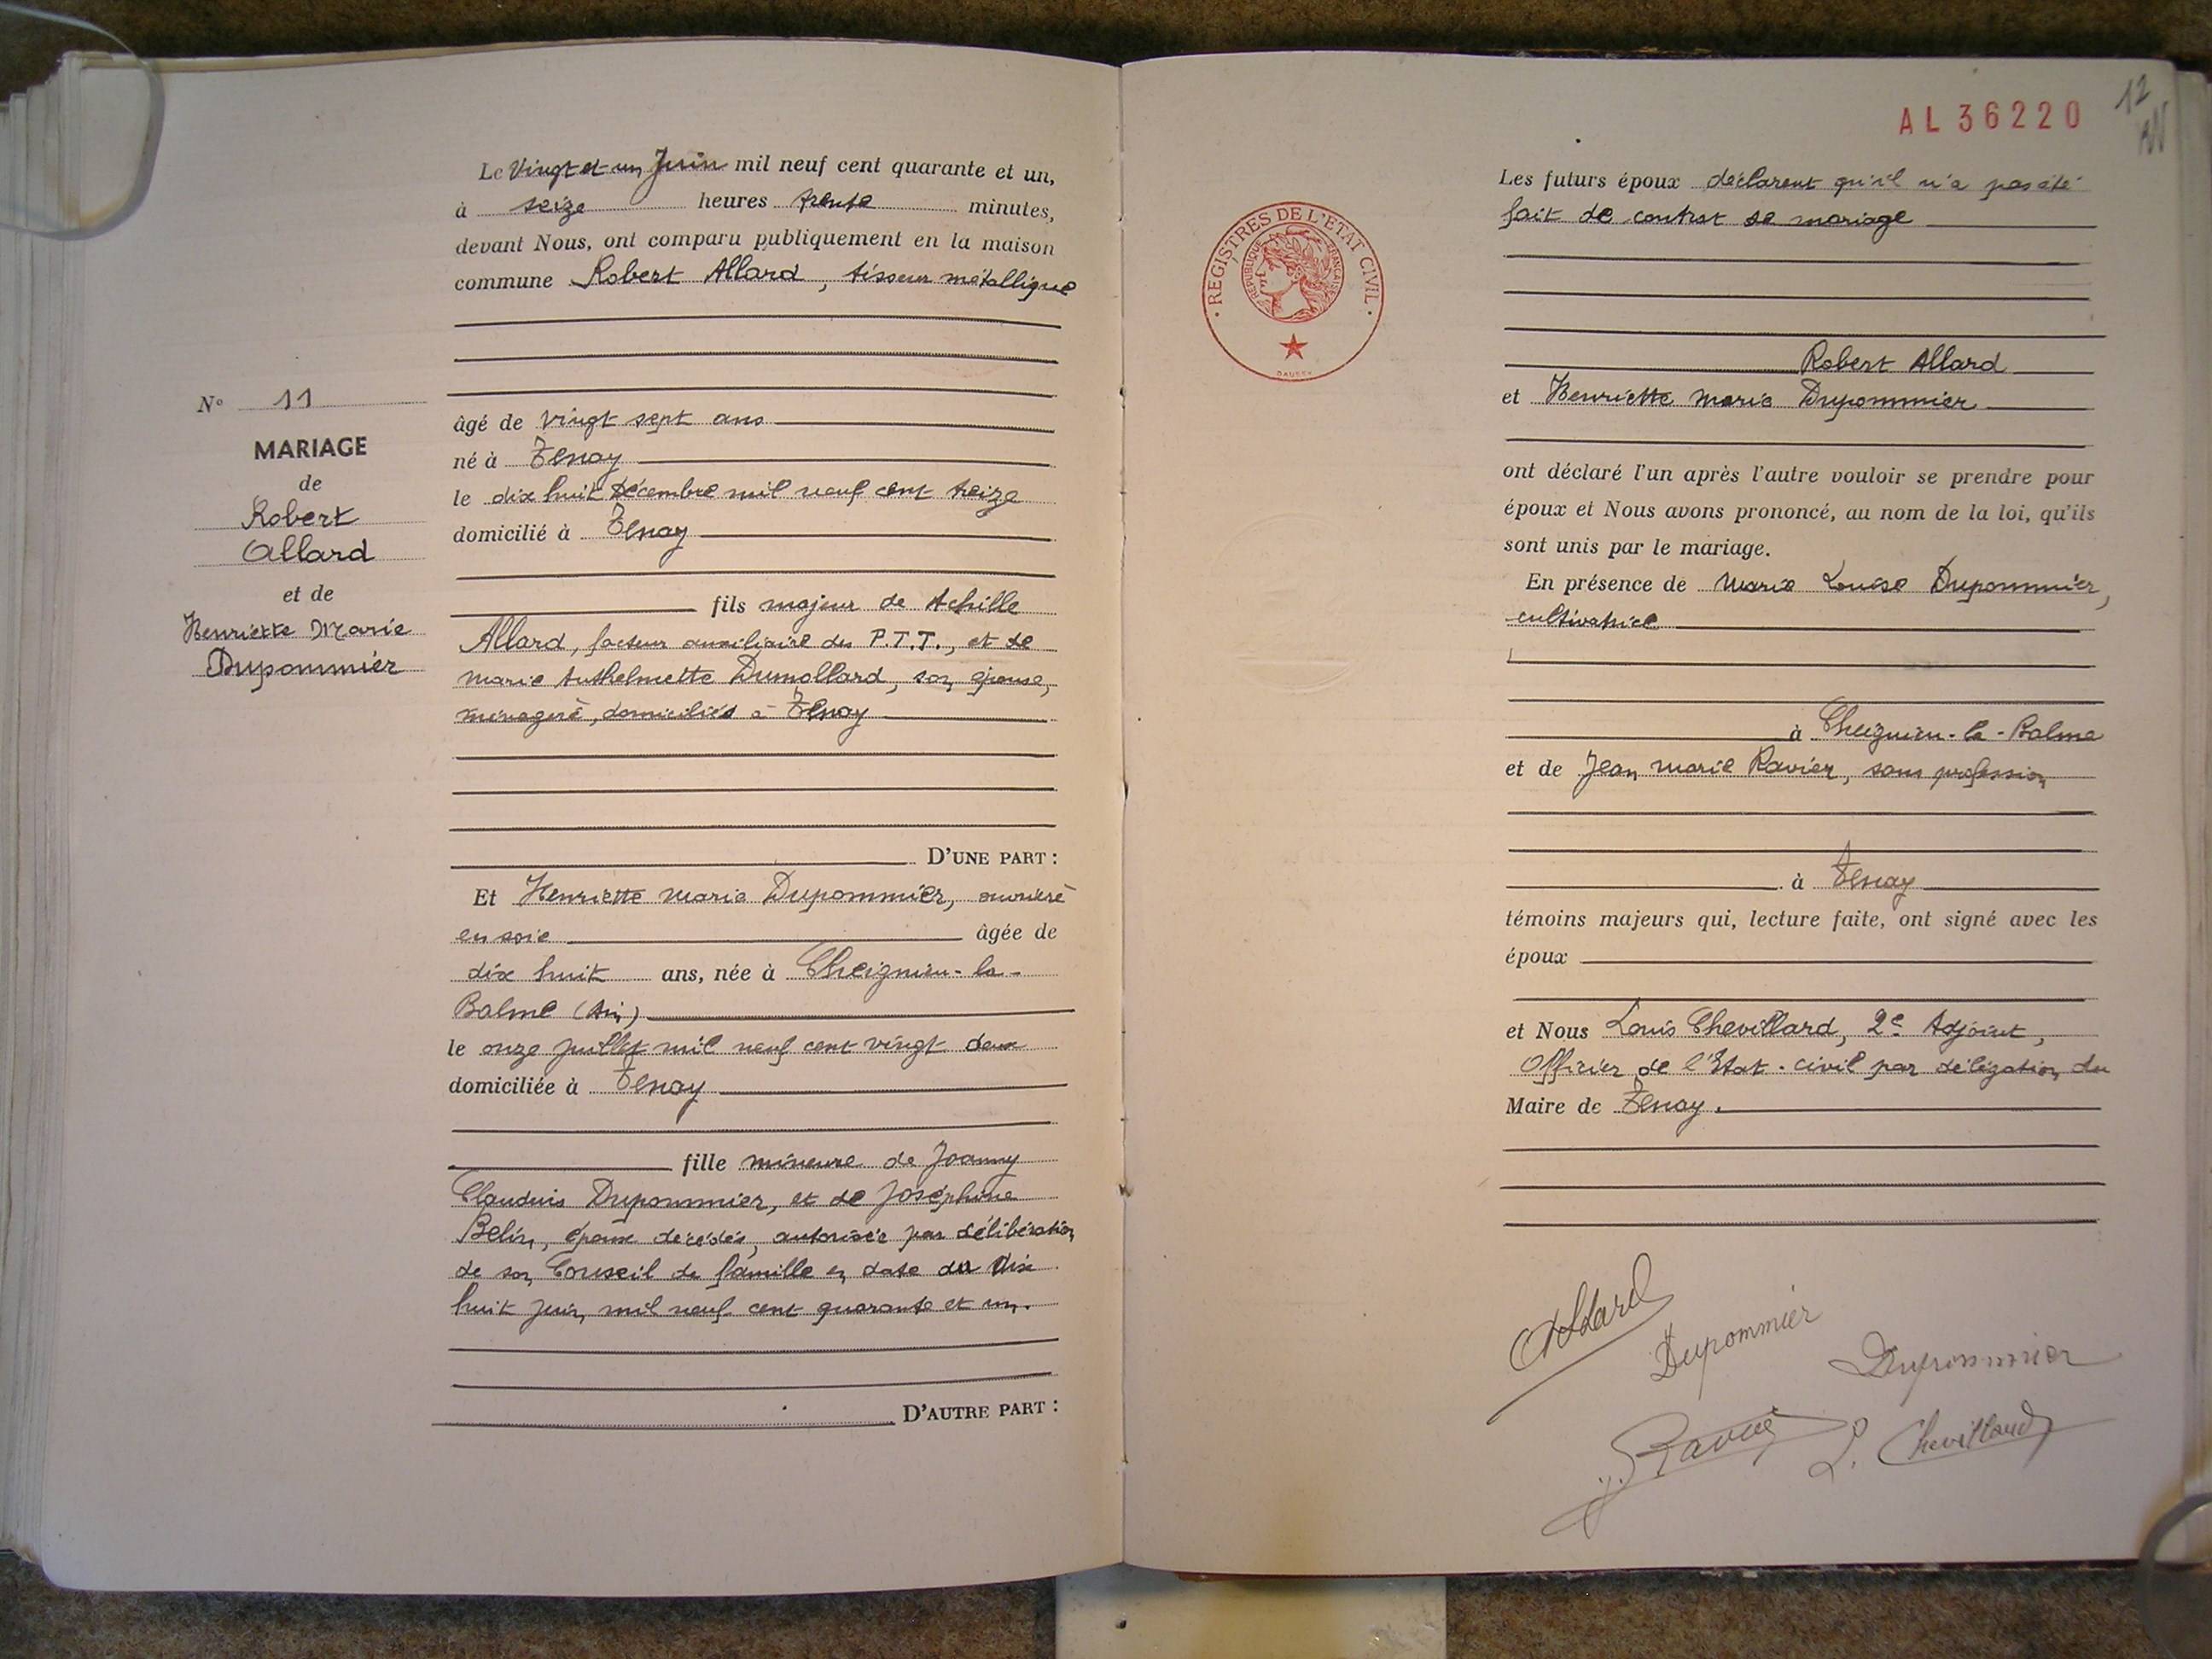 N° 11
MARIAGE
de
Robert
Allard
et de
Henriette Marie
Dupommier
Le Vingt et un Juin mil neuf cent quarante et un,
à seize heures trente minutes,
devant Nous, ont comparu publiquement en la maison
commune Robert Allard, tisseur métallique
âgé de vingt sept ans
né à Tenay
le dix huit Décembre mil neuf cent treize
domicilié à Tenay
fils majeur de Achille
Allard, facteur auxiliaire des P.T.T., et de
Marie Anthelmette Dumollard, son épouse,
ménagère, domiciliés à Tenay
D'UNE PART :
Et Henriette Marie Dupommier, ouvrière
en soie âgée de
dix huit ans, née à Cheignieu-la-
Balme (Ain)
le onze juillet mil neuf cent vingt deux
domiciliée à Tenay
fille mineure de Joanny
Claudius Dupommier, et de Joséphine
Belin, époux décédés, autorisée par délibération
de son Conseil de famille en date du Dix
huit juin mil neuf cent quarante et un.
D'AUTRE PART :
AL 36220
12
REGISTRES DE L'ETAT CIVIL
REPUBLIQUE FRANCAISE
Les futurs époux déclarent qu'il n'a pas été
fait de contrat de mariage
Robert Allard
et Henriette Marie Dupommier
ont déclaré l'un après l'autre vouloir se prendre pour
époux et Nous avons prononcé, au nom de la loi, qu'ils
sont unis par le mariage.
En présence de Marie Louise Dupommier,
cultivatrice
à Cheignieu-la-Balme
et de Jean Marie Ravier, sans profession
à Tenay
témoins majeurs qui, lecture faite, ont signé avec les
époux
et Nous Louis Chevillard, 2e Adjoint,
Officier de l'Etat-civil par délégation du
Maire de Tenay.
Allard
Dupommier
Dupommier
J. Ravier
L. Chevillard